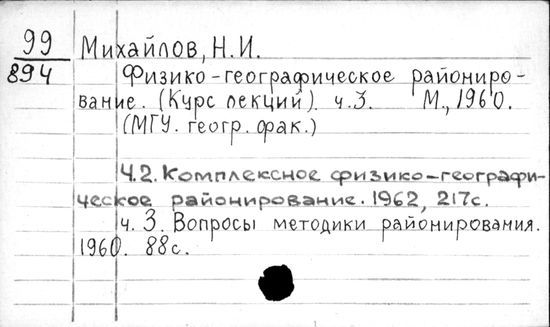 99 Михайлов, Н.И.
894 Физико-географическое райониро-
вание. (Курс лекций). ч.3. М., 1960.
(МГУ. геогр. фак.)
Ч.2. Комплексное физико-географи-
ческое районирование. 1962, 217с.
ч. 3. Вопросы методики районирования.
1960. 88с.